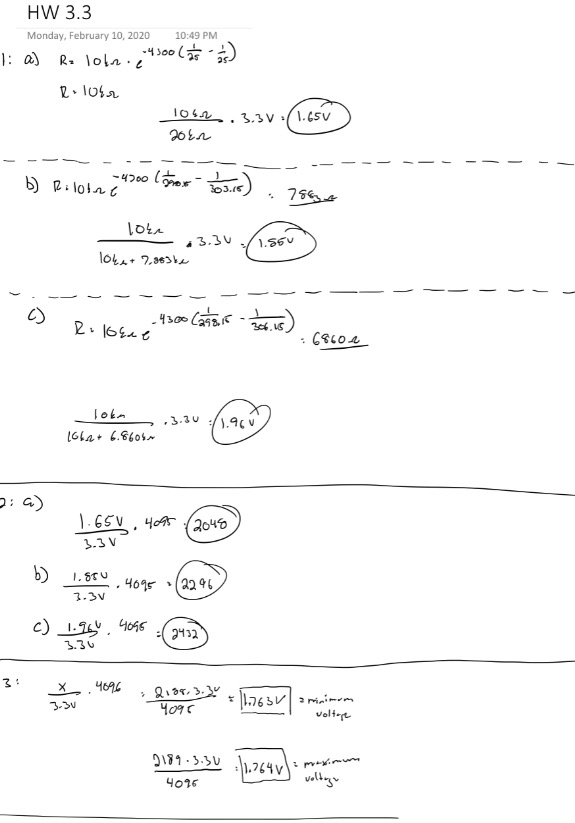 HW 3.3
Monday, February 10, 2020 10:49 PM
1: a) R = 10kΩ · e^-4300 (1/25 - 1/25)
R = 10kΩ
10kΩ / 20kΩ · 3.3V = 1.65V
b) R = 10kΩ e^-4300 (1/298.15 - 1/303.15) = 7883Ω
10kΩ / 10kΩ + 7.883kΩ · 3.3V = 1.85V
c) R = 10kΩ e^-4300 (1/298.15 - 1/306.15) = 6860Ω
10kΩ / 10kΩ + 6.860kΩ · 3.3V = 1.96V
2: a)
1.65V / 3.3V · 4095 = 2048
b) 1.85V / 3.3V · 4095 = 2296
c) 1.96V / 3.3V · 4095 = 2432
3: x / 3.3V · 4096 = 2188 · 3.3V / 4095 = 1.763V = minimum voltage
2189 · 3.3V / 4095 = 1.764V = maximum voltage